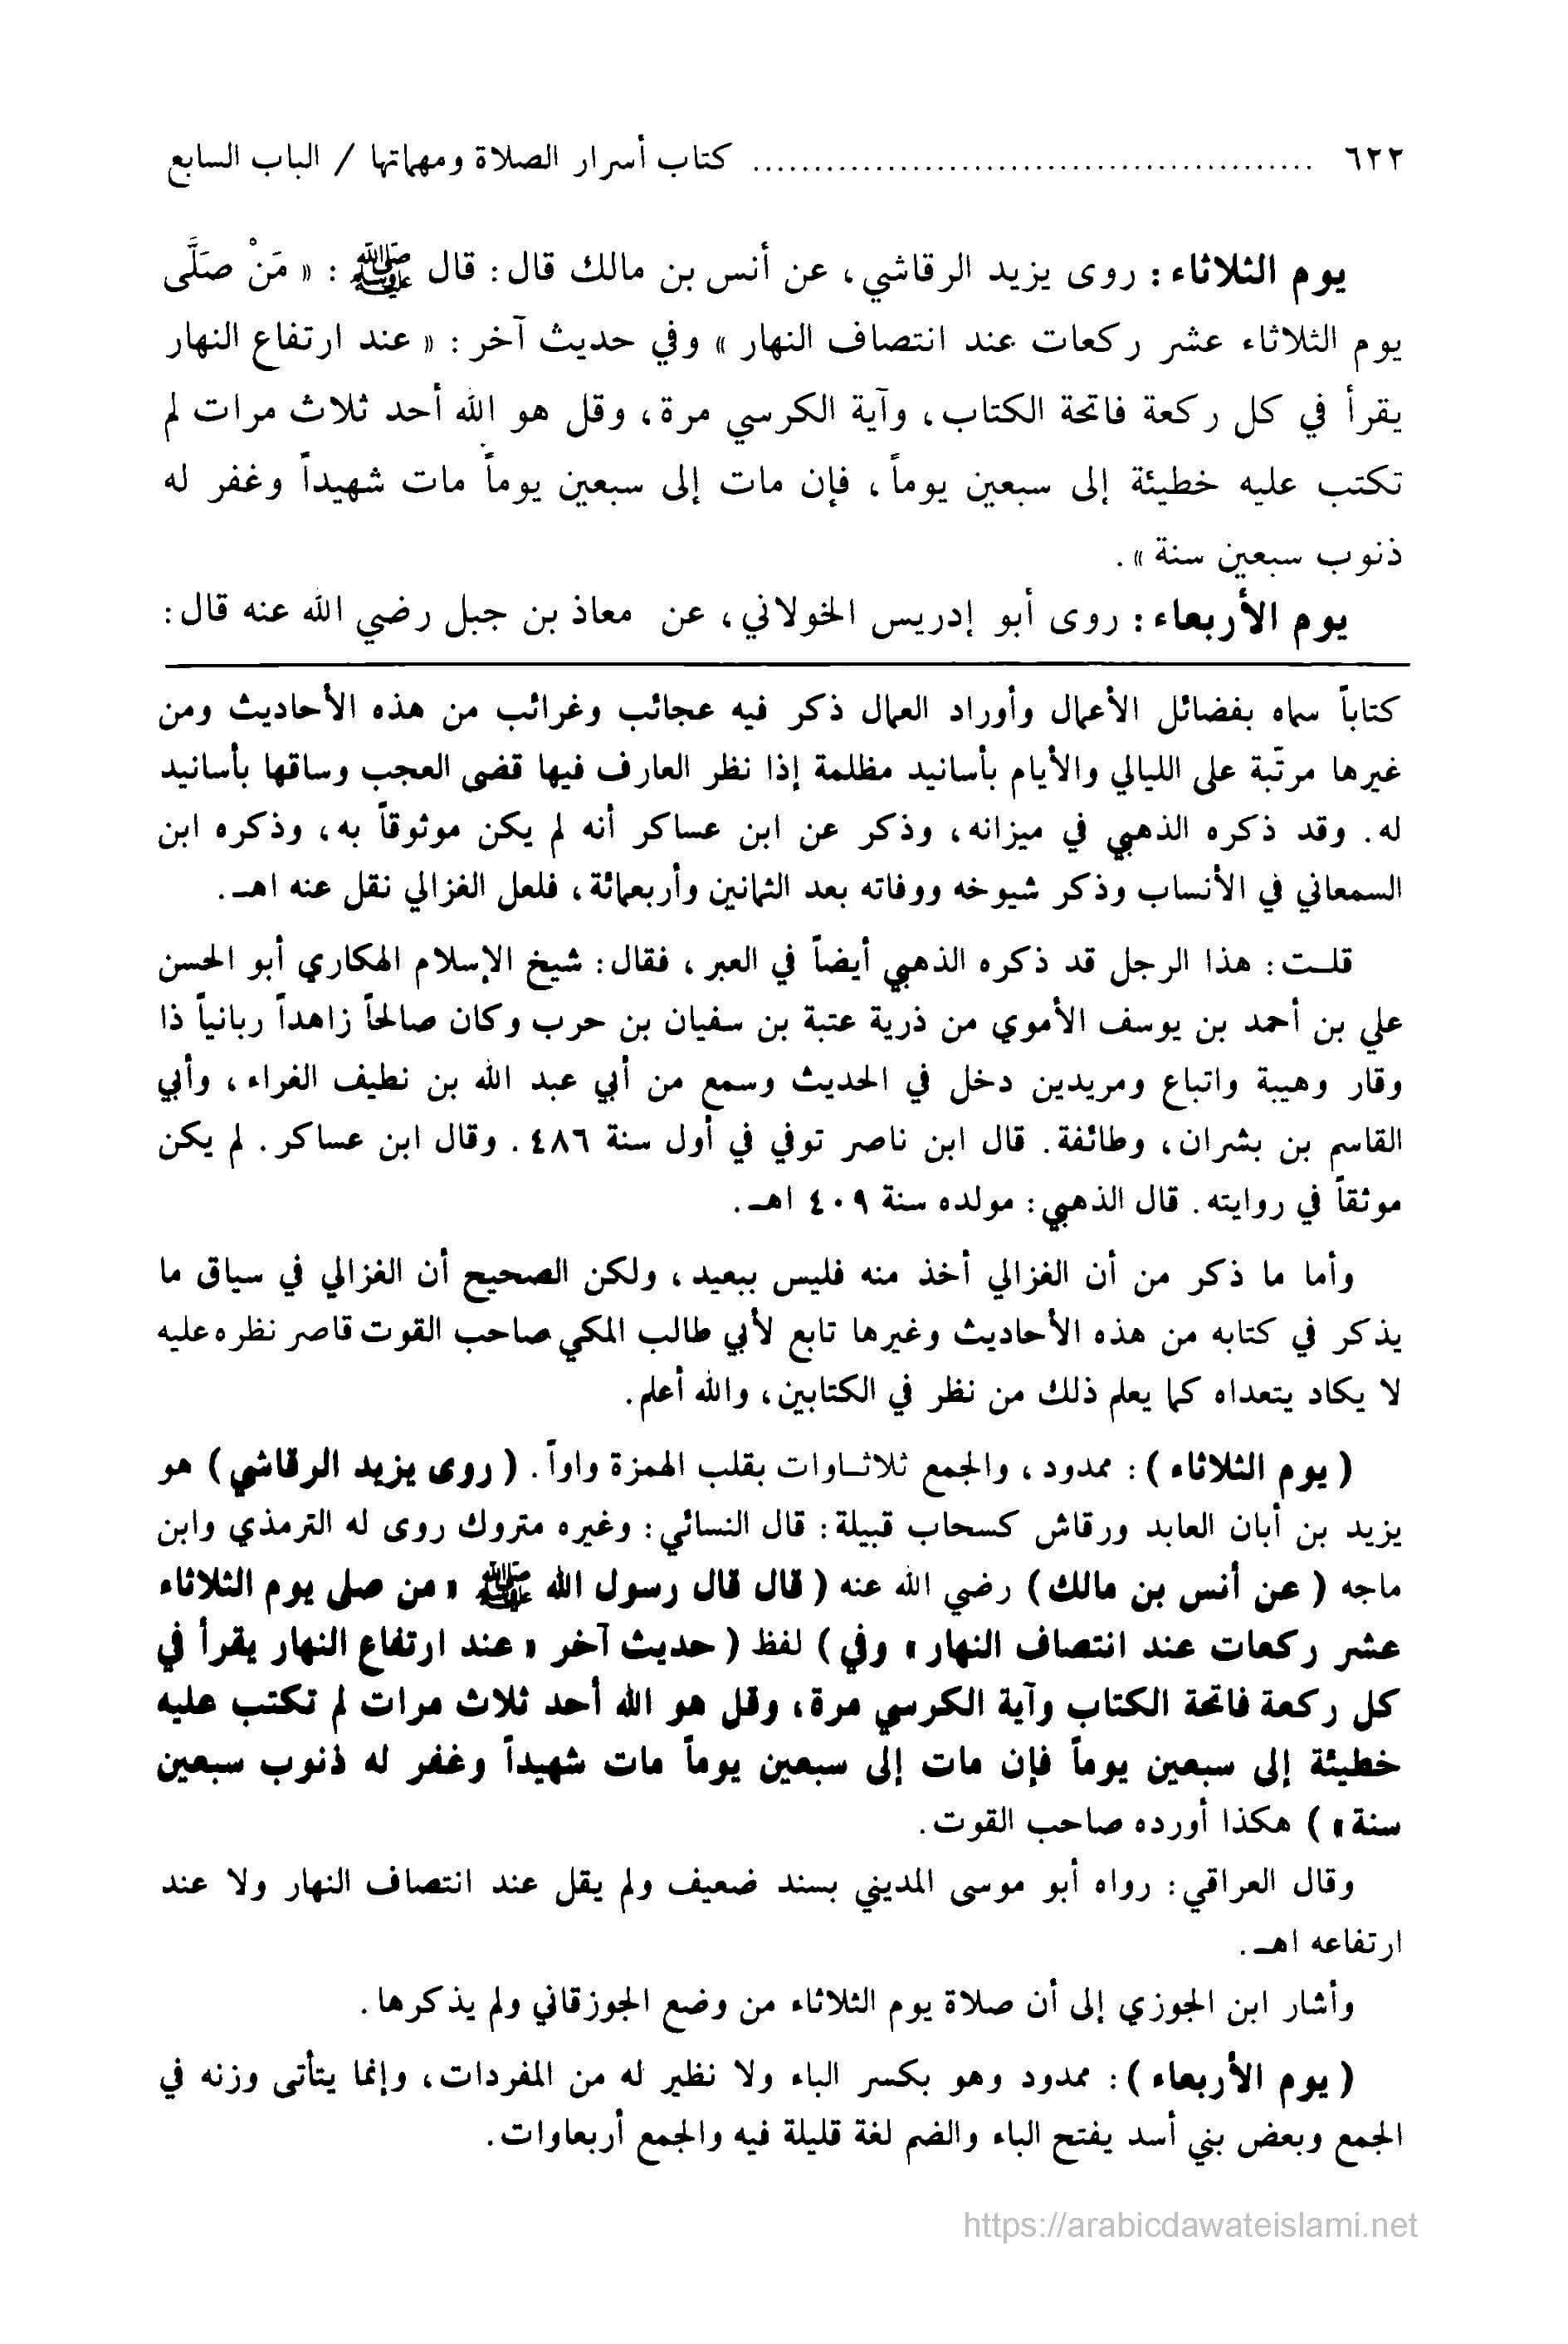 ٦٢٢ ............................................... كتاب أسرار الصلاة ومهماتها / الباب السابع
يوم الثلاثاء: روى يزيد الرقاشي، عن أنس بن مالك قال: قال ﷺ : « مَنْ صَلَّى
يوم الثلاثاء عشر ركعات عند انتصاف النهار » وفي حديث آخر : « عند ارتفاع النهار
يقرأ في كل ركعة فاتحة الكتاب، وآية الكرسي مرة، وقل هو الله أحد ثلاث مرات لم
تكتب عليه خطيئة إلى سبعين يوماً ، فإن مات إلى سبعين يوماً مات شهيداً وغفر له
ذنوب سبعين سنة » .
يوم الأربعاء: روى أبو إدريس الخولاني، عن معاذ بن جبل رضي الله عنه قال:
كتاباً سماه بفضائل الأعمال وأوراد العمال ذكر فيه عجائب وغرائب من هذه الأحاديث ومن
غيرها مرتّبة على الليالي والأيام بأسانيد مظلمة إذا نظر العارف فيها قضى العجب وساقها بأسانيد
له. وقد ذكره الذهبي في ميزانه، وذكر عن ابن عساكر أنه لم يكن موثوقاً به، وذكره ابن
السمعاني في الأنساب وذكر شيوخه ووفاته بعد الثمانين وأربعمائة، فلعل الغزالي نقل عنه اهـ.
قلـت: هذا الرجل قد ذكره الذهبي أيضاً في العبر ، فقال: شيخ الإسلام الهكاري أبو الحسن
علي بن أحمد بن يوسف الأموي من ذرية عتبة بن سفيان بن حرب وكان صالحاً زاهداً ربانياً ذا
وقار وهيبة واتباع ومريدين دخل في الحديث وسمع من أبي عبد الله بن نطيف الفراء، وأبي
القاسم بن بشران، وطائفة. قال ابن ناصر توفي في أول سنة ٤٨٦. وقال ابن عساكر. لم يكن
موثقاً في روايته. قال الذهبي: مولده سنة ٤٠٩ اهـ.
وأما ما ذكر من أن الغزالي أخذ منه فليس ببعيد، ولكن الصحيح أن الغزالي في سياق ما
يذكر في كتابه من هذه الأحاديث وغيرها تابع لأبي طالب المكي صاحب القوت قاصر نظره عليه
لا يكاد يتعداه كما يعلم ذلك من نظر في الكتابين، والله أعلم.
( يوم الثلاثاء ) : ممدود ، والجمع ثلاثـاوات بقلب الهمزة واواً . ( روى يزيد الرقاشي) هو
يزيد بن أبان العابد ورقاش كسحاب قبيلة: قال النسائي: وغيره متروك روى له الترمذي وابن
ماجه ( عن أنس بن مالك) رضي الله عنه ( قال قال رسول الله ﷺ « من صلى يوم الثلاثاء
عشر ركعات عند انتصاف النهار » وفي) لفظ ( حديث آخر « عند ارتفاع النهار يقرأ في
كل ركعة فاتحة الكتاب وآية الكرسي مرة، وقل هو الله أحد ثلاث مرات لم تكتب عليه
خطيئة إلى سبعين يوماً فإن مات إلى سبعين يوماً مات شهيداً وغفر له ذنوب سبعين
سنة » ) هكذا أورده صاحب القوت.
وقال العراقي: رواه أبو موسى المديني بسند ضعيف ولم يقل عند انتصاف النهار ولا عند
ارتفاعه اهـ.
وأشار ابن الجوزي إلى أن صلاة يوم الثلاثاء من وضع الجوزقاني ولم يذكرها.
( يوم الأربعاء ) : ممدود وهو بكسر الباء ولا نظير له من المفردات، وإنما يتأتى وزنه في
الجمع وبعض بني أسد يفتح الباء والضم لغة قليلة فيه والجمع أربعاوات.
https://arabicdawateislami.net